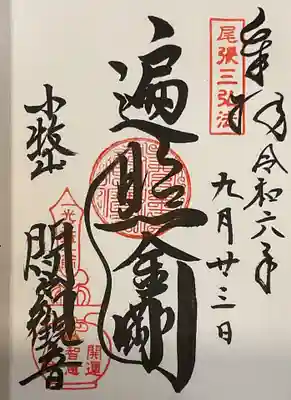 尾張三弘法
奉拝 令和六年
九月廿三日
遍照金剛
小牧山
間々観音
開運